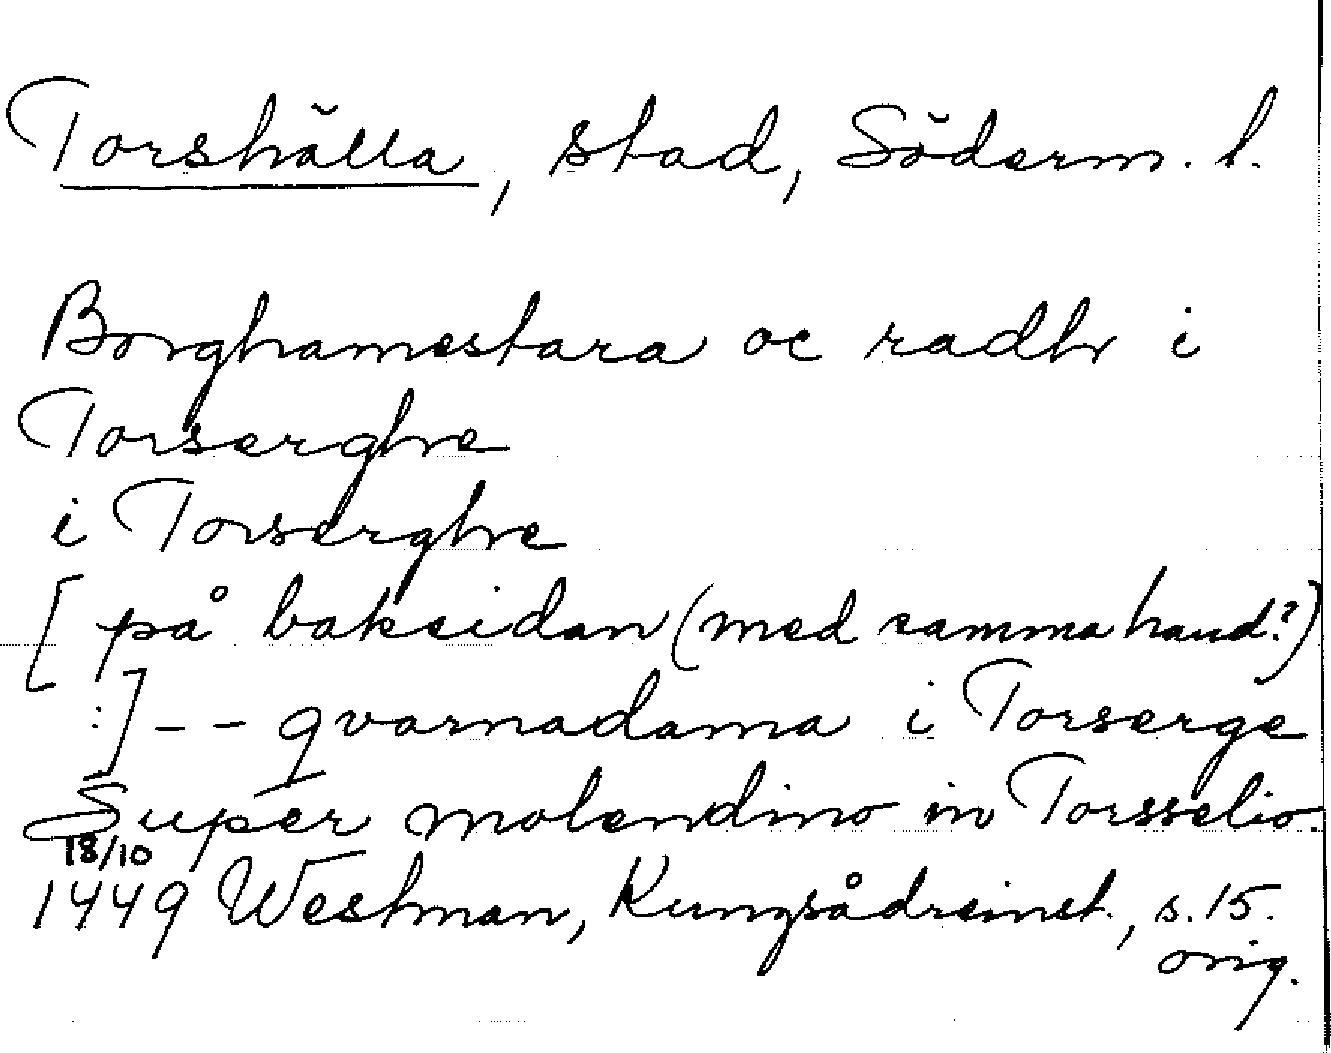 Torshälla, stad, Söderm. l.
Borghamestara oc radh i
Torserghe
i Torserghe
[på baksidan (med samma hand?)
:] - - qvarnadama i Torserge
Super molendino in Torsselio.
18/10
1449 Westman, Kungsådreinst., s. 15.
orig.